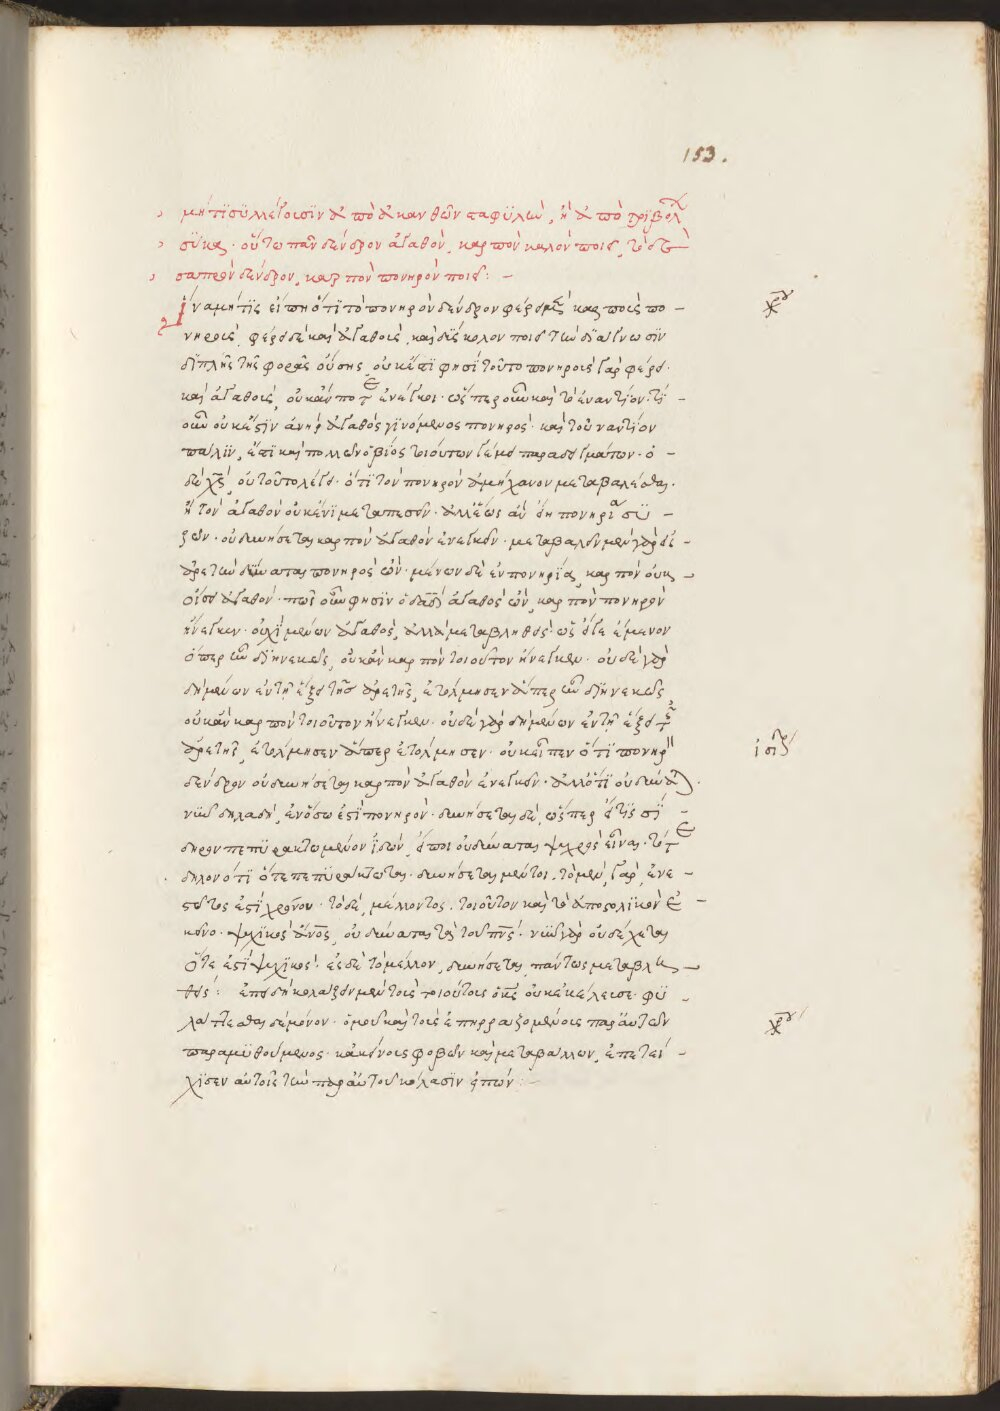 153.
μήτι συλλέγουσιν ἀπὸ ἀκανθῶν σταφυλὴν, ἢ ἀπὸ τριβόλ
σῦκα· οὕτω πᾶν δένδρον ἀγαθὸν, καρπὸν καλὸν ποιεῖ, τὸ δὲ
σαπρὸν δένδρον, καρπὸν πονηρὸν ποιεῖ: –
Ἵνα μή τις εἴπῃ ὅτι τὸ πονηρὸν δένδρον φέρει μὲν καρποὺς πο –
νηροὺς, φέρει δὲ καὶ ἀγαθοὺς, καὶ δύσκολον ποιεῖ τὴν διάγνωσιν
διπλῆς τῆς φορᾶς οὔσης, οὐκ ἔστι φησὶ τοῦτο πονηροὺς γὰρ φέρει·
καὶ ἀγαθοὺς, οὐκ ἄν ποτε ἐνέγκοι· ὥσπερ οὖν καὶ τὸ ἐναντίον· τί –
οὖν οὐκ ἔστιν ἀνὴρ ἀγαθὸς γινόμενος πονηρός· καὶ τοὐναντίον
πάλιν, ἔστι καὶ πολλῶν ὁ βίος τοιούτων γέμει παραδειγμάτων· ὁ –
δὲ χς, οὐ τοῦτο λέγει· ὅτι τὸν πονηρὸν ἀμήχανον μεταβαλέσθαι·
ἢ τὸν ἀγαθὸν οὐκ ἔνι μεταπεσεῖν· ἀλλ' ἕως ἂν ἐν πονηρίᾳ συ –
ζῶν· οὐ δυνήσεται καρπὸν ἀγαθὸν ἐνεγκεῖν· μεταβαλεῖν μὲν γὰρ εἰ –
ἀρετὴν δύναται πονηρὸς ὢν· μένων δὲ ἐν πονηρίᾳ, καρπὸν οὐκ –
οἴσει ἀγαθόν· πῶς οὖν φησὶν ὁ δαδ ἀγαθὸς ὢν, καρπὸν πονηρὸν
ἤνεγκεν· οὐχὶ μένων ἀγαθὸς, ἀλλὰ μεταβληθεὶς· ὡς εἴγε ἔμενον
ὅπερ ἦν διηνεκῶς, οὐκ ἂν καρπὸν τοιοῦτον ἤνεγκεν· οὐδὲ γὰρ
δὴ μένων ἐν τῇ ἕξει τῆς ἀρετῆς, ἐτόλμησεν ἅπερ ἦν διηνεκῶς,
οὐκ ἂν καρπὸν τοιοῦτον ἤνεγκεν· οὐδὲ γὰρ δὴ μένων ἐν τῇ ἕξει τῆς
ἀρετῆς, ἐτόλμησεν ἅπερ ἐτόλμησεν· οὐκ εἶπεν ὅτι πονηρ
δένδρον οὐ δυνήσεται καρπὸν ἀγαθὸν ἐνεγκεῖν· ἀλλ' ὅτι οὐ δύναται·
νῦν δηλαδὴ, ἐν ὅσω ἐστὶ πονηρόν· δυνήσεται δὲ, ὥσπερ εἴ τις σι –
δηρον πεπυρακτωμένον ἰδὼν, εἴποι οὐ δύναται ψυχρὸς εἶναι· τότε
δῆλον ὅτι ὅτε πεπυράκτωται· δυνήσεται μέντοι, τὸ μὲν, γὰρ, ἐνε –
στῶτος ἐστὶ χρόνου· τὸ δὲ, μέλλοντος· τοιοῦτον καὶ τὸ ἀποστολικὸν ἐ –
κεῖνο· ψυχικὸς ἄνος, οὐ δύναται τὰ τοῦ πνς· νῦν γὰρ οὐ δέχεται
ὅτε ἐστὶ ψυχικός· εἰς δὲ τὸ μέλλον, δυνήσεται, πάντως μεταβλη –
θείς: ἐπειδὴ κολάζειν μὲν τοὺς τοιούτους ὁ κς οὐκ ἐκέλευσε· φυ –
λάττεσθαι δὲ μόνον· ὁμοῦ καὶ τοὺς ἐπηρεαζομένους παρ' αὐτῶν
παραμυθούμενος· κἀκείνους φοβῶν καὶ μεταβάλλων, ἐπετεί –
χισεν αὐτοῖς τὴν παρ' αὐτοῦ κόλασιν εἰπών: –